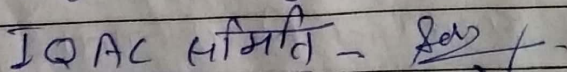 IQAC समिति -